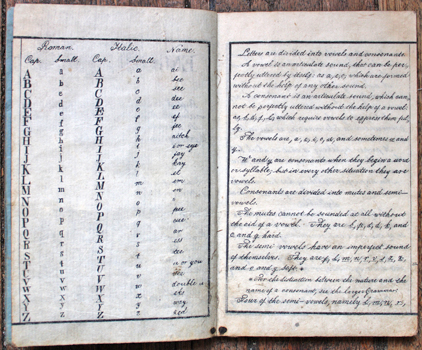 Roman. Italic. Name.
Cap. Small. Cap. Small.
A a A a
B b B b bee
C c C c see
D d D d dee
E e E e ee
F f F f ef
G g G g jee
H h H h aitch
I i I i i or eye
J j J j jay
K k K k kay
L l L l el
M m M m em
N n N n en
O o O o o
P p P p pee
Q q Q q
R r R r ar
S s S s ess
T t T t tee
U u U u u or you
V v V v vee
W w W w double u
X x X x eks
Y y Y y wy
Z z Z z zed
Letters are divided into vowels and consonants.
A vowel is an articulate sound, that can be per-
fectly uttered by itself: as a, e, o, which are formed
without the help of any other sound.
A consonant is an articulate sound, which can
not be perfectly uttered without the help of a vowel:
as, b, d, f, l, which require vowels to express them ful-
ly.
The vowels are, a, e, i, o, u, and sometimes w and
y.
W and y are consonants when they begin a word
or syllable; but in every other situation they are
vowels.
Consonants are divided into mutes and semi-
vowels.
The mutes cannot be sounded at all without
the aid of a vowel. They are b, p, t, d, k, and
c and g hard.
The semi vowels have an imperfect sound
of themselves. They are f, l, m, n, r, v, s, z, x,
and c and g soft.
For the distinction between the nature and the
name of a consonant, see the larger Grammar
Four of the semi-vowels, namely l, m, n, r,